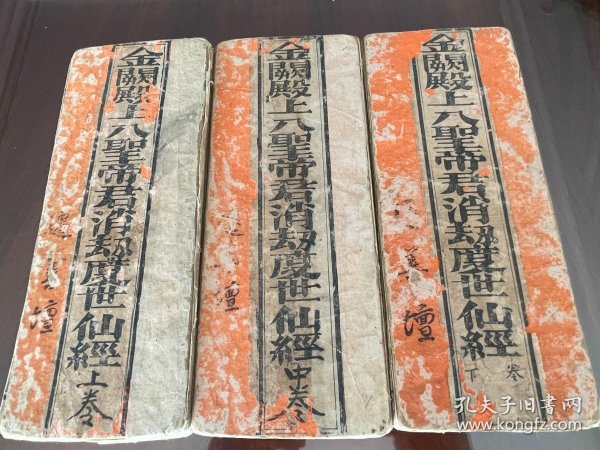 金闕殿上八聖帝君消劫度世仙經上卷
壇
金闕殿上八聖帝君消劫度世仙經中卷
壇
金闕殿上八聖帝君消劫度世仙經下卷
壇
孔夫子旧书网
www.kongfz.com